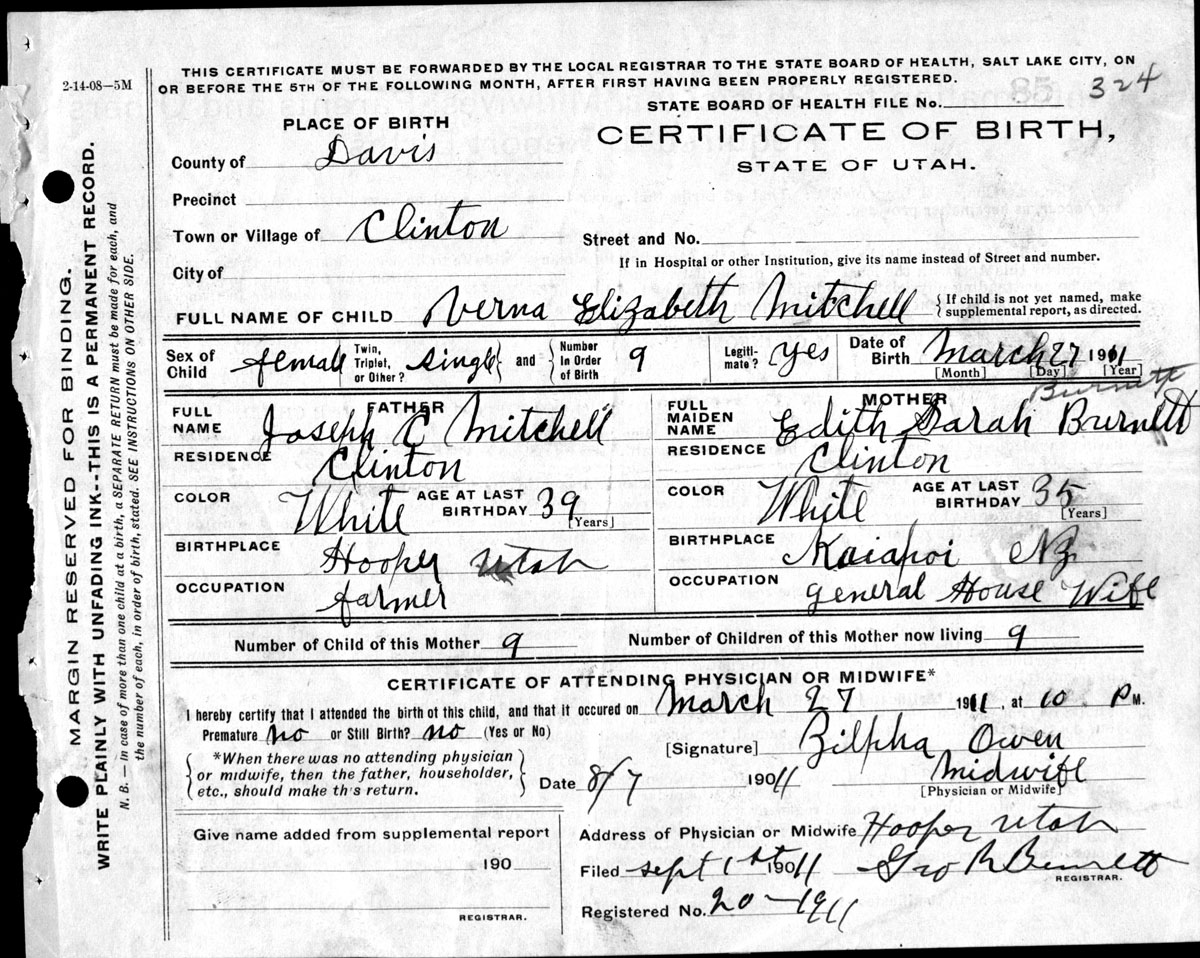 2-14-08—5M
THIS CERTIFICATE MUST BE FORWARDED BY THE LOCAL REGISTRAR TO THE STATE BOARD OF HEALTH, SALT LAKE CITY, ON
OR BEFORE THE 5TH OF THE FOLLOWING MONTH, AFTER FIRST HAVING BEEN PROPERLY REGISTERED.
STATE BOARD OF HEALTH FILE No. 85 324
PLACE OF BIRTH
CERTIFICATE OF BIRTH,
STATE OF UTAH.
County of Davis
Precinct
Town or Village of Clinton
Street and No.
If in Hospital or other Institution, give its name instead of Street and number.
City of
FULL NAME OF CHILD Verna Elizabeth Mitchell {If child is not yet named, make
supplemental report, as directed.
Sex of Child female Twin, Triplet, or Other? Single and Number in Order of Birth 9 Legiti-mate? Yes Date of Birth March 27 1911
[Month] [Day] [Year]
Burnett
FATHER
MOTHER
FULL NAME Joseph C Mitchell
FULL MAIDEN NAME Edith Sarah Burnett
RESIDENCE Clinton
RESIDENCE Clinton
COLOR White AGE AT LAST BIRTHDAY 39 [Years]
COLOR White AGE AT LAST BIRTHDAY 35 [Years]
BIRTHPLACE Hooper Utah
BIRTHPLACE Kaiapoi NZ
OCCUPATION farmer
OCCUPATION general House Wife
Number of Child of this Mother 9 Number of Children of this Mother now living 9
CERTIFICATE OF ATTENDING PHYSICIAN OR MIDWIFE*
I hereby certify that I attended the birth of this child, and that it occured on March 27 1911, at 10 P M.
Premature no or Still Birth? no (Yes or No)
[Signature] Zilpha Owen
*When there was no attending physician
or midwife, then the father, householder,
etc., should make this return.
Date 8/7 1911 Midwife
[Physician or Midwife]
Give name added from supplemental report
190
REGISTRAR.
Address of Physician or Midwife Hooper Utah
Filed Sept 1st 1911 Geo R Bennett
REGISTRAR.
Registered No. 20—1911
MARGIN RESERVED FOR BINDING.
WRITE PLAINLY WITH UNFADING INK--THIS IS A PERMANENT RECORD.
N. B. — In case of more than one child at a birth, a SEPARATE RETURN must be made for each, and
the number of each, in order of birth, stated. SEE INSTRUCTIONS ON OTHER SIDE.